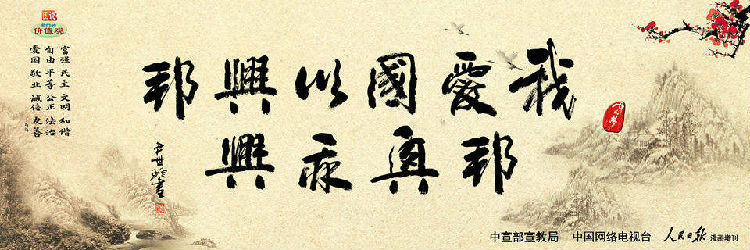 价值观
富强 民主 文明 和谐
自由 平等 公正 法治
爱国 敬业 诚信 友善
我愛國以興邦
邦興
中宣部宣教局 中国网络电视台 人民日报 漫画增刊